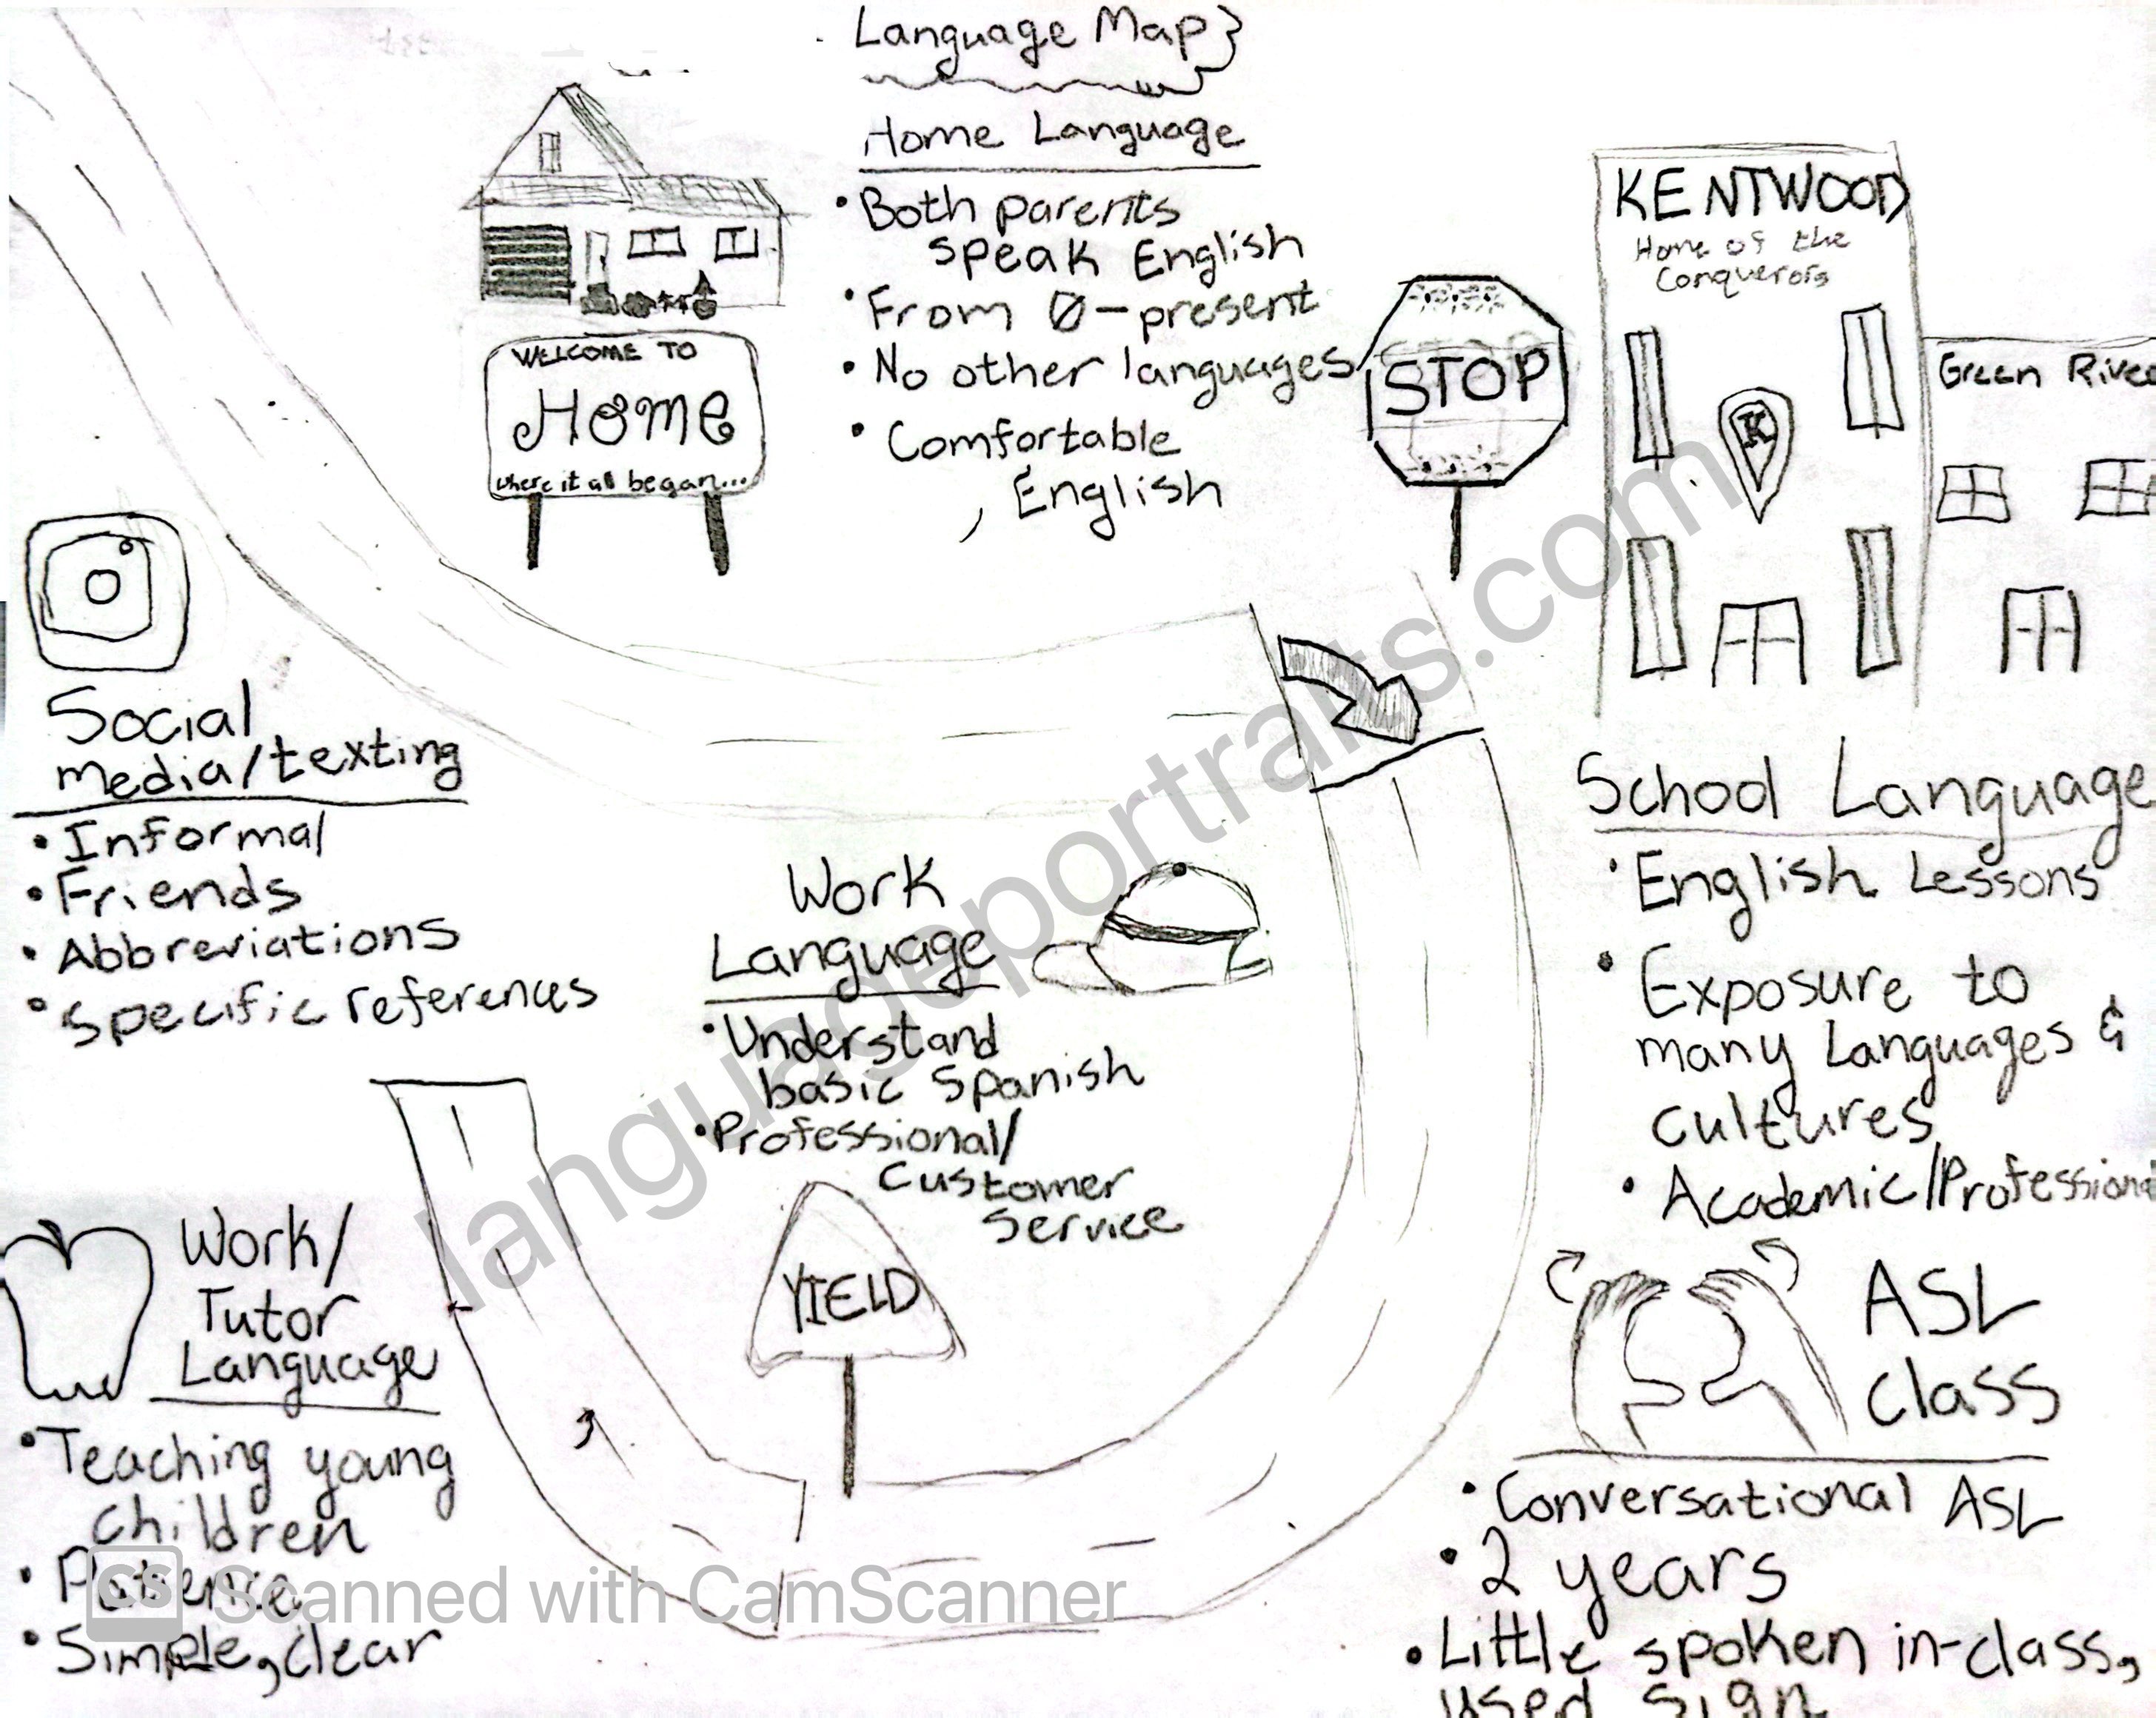 Language Map
Home Language
• Both parents
speak English
• From 0-present
• No other languages
• Comfortable
English
WELCOME TO
Home
where it all began...
STOP
KENTWOOD
Home of the
Conquerors
K
Green River
School Language
• English Lessons
• Exposure to
many Languages &
cultures
• Academic/Professional
Social
media/texting
• Informal
• Friends
• Abbreviations
• Specific references
Work
Language
• Understand
basic Spanish
• Professional/
Customer
Service
YIELD
Work/
Tutor
Language
• Teaching young
children
• Patience
• Simple, clear
ASL
class
• Conversational ASL
• 2 years
• Little spoken in-class,
used sign
languageportraits.com
CS Scanned with CamScanner